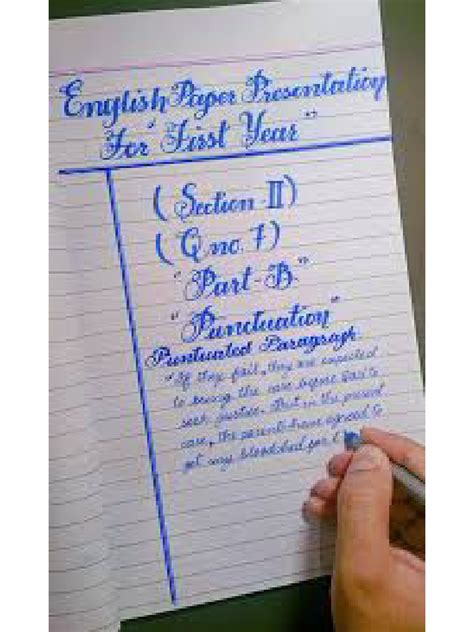 English Paper Presentation
For "First Year"
(Section-II)
(Q no. 7)
"Part-B"
"Punctuation"
Puntuated Paragraph
"If they fail, they are expected
to bring the case before God to
seek justice. But in the present
case, the parents have agreed to
get my bloodshed for